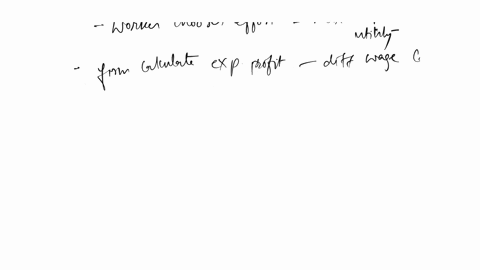 - Worker chooses effort -
utility
- firm calculate exp profit - diff wage C